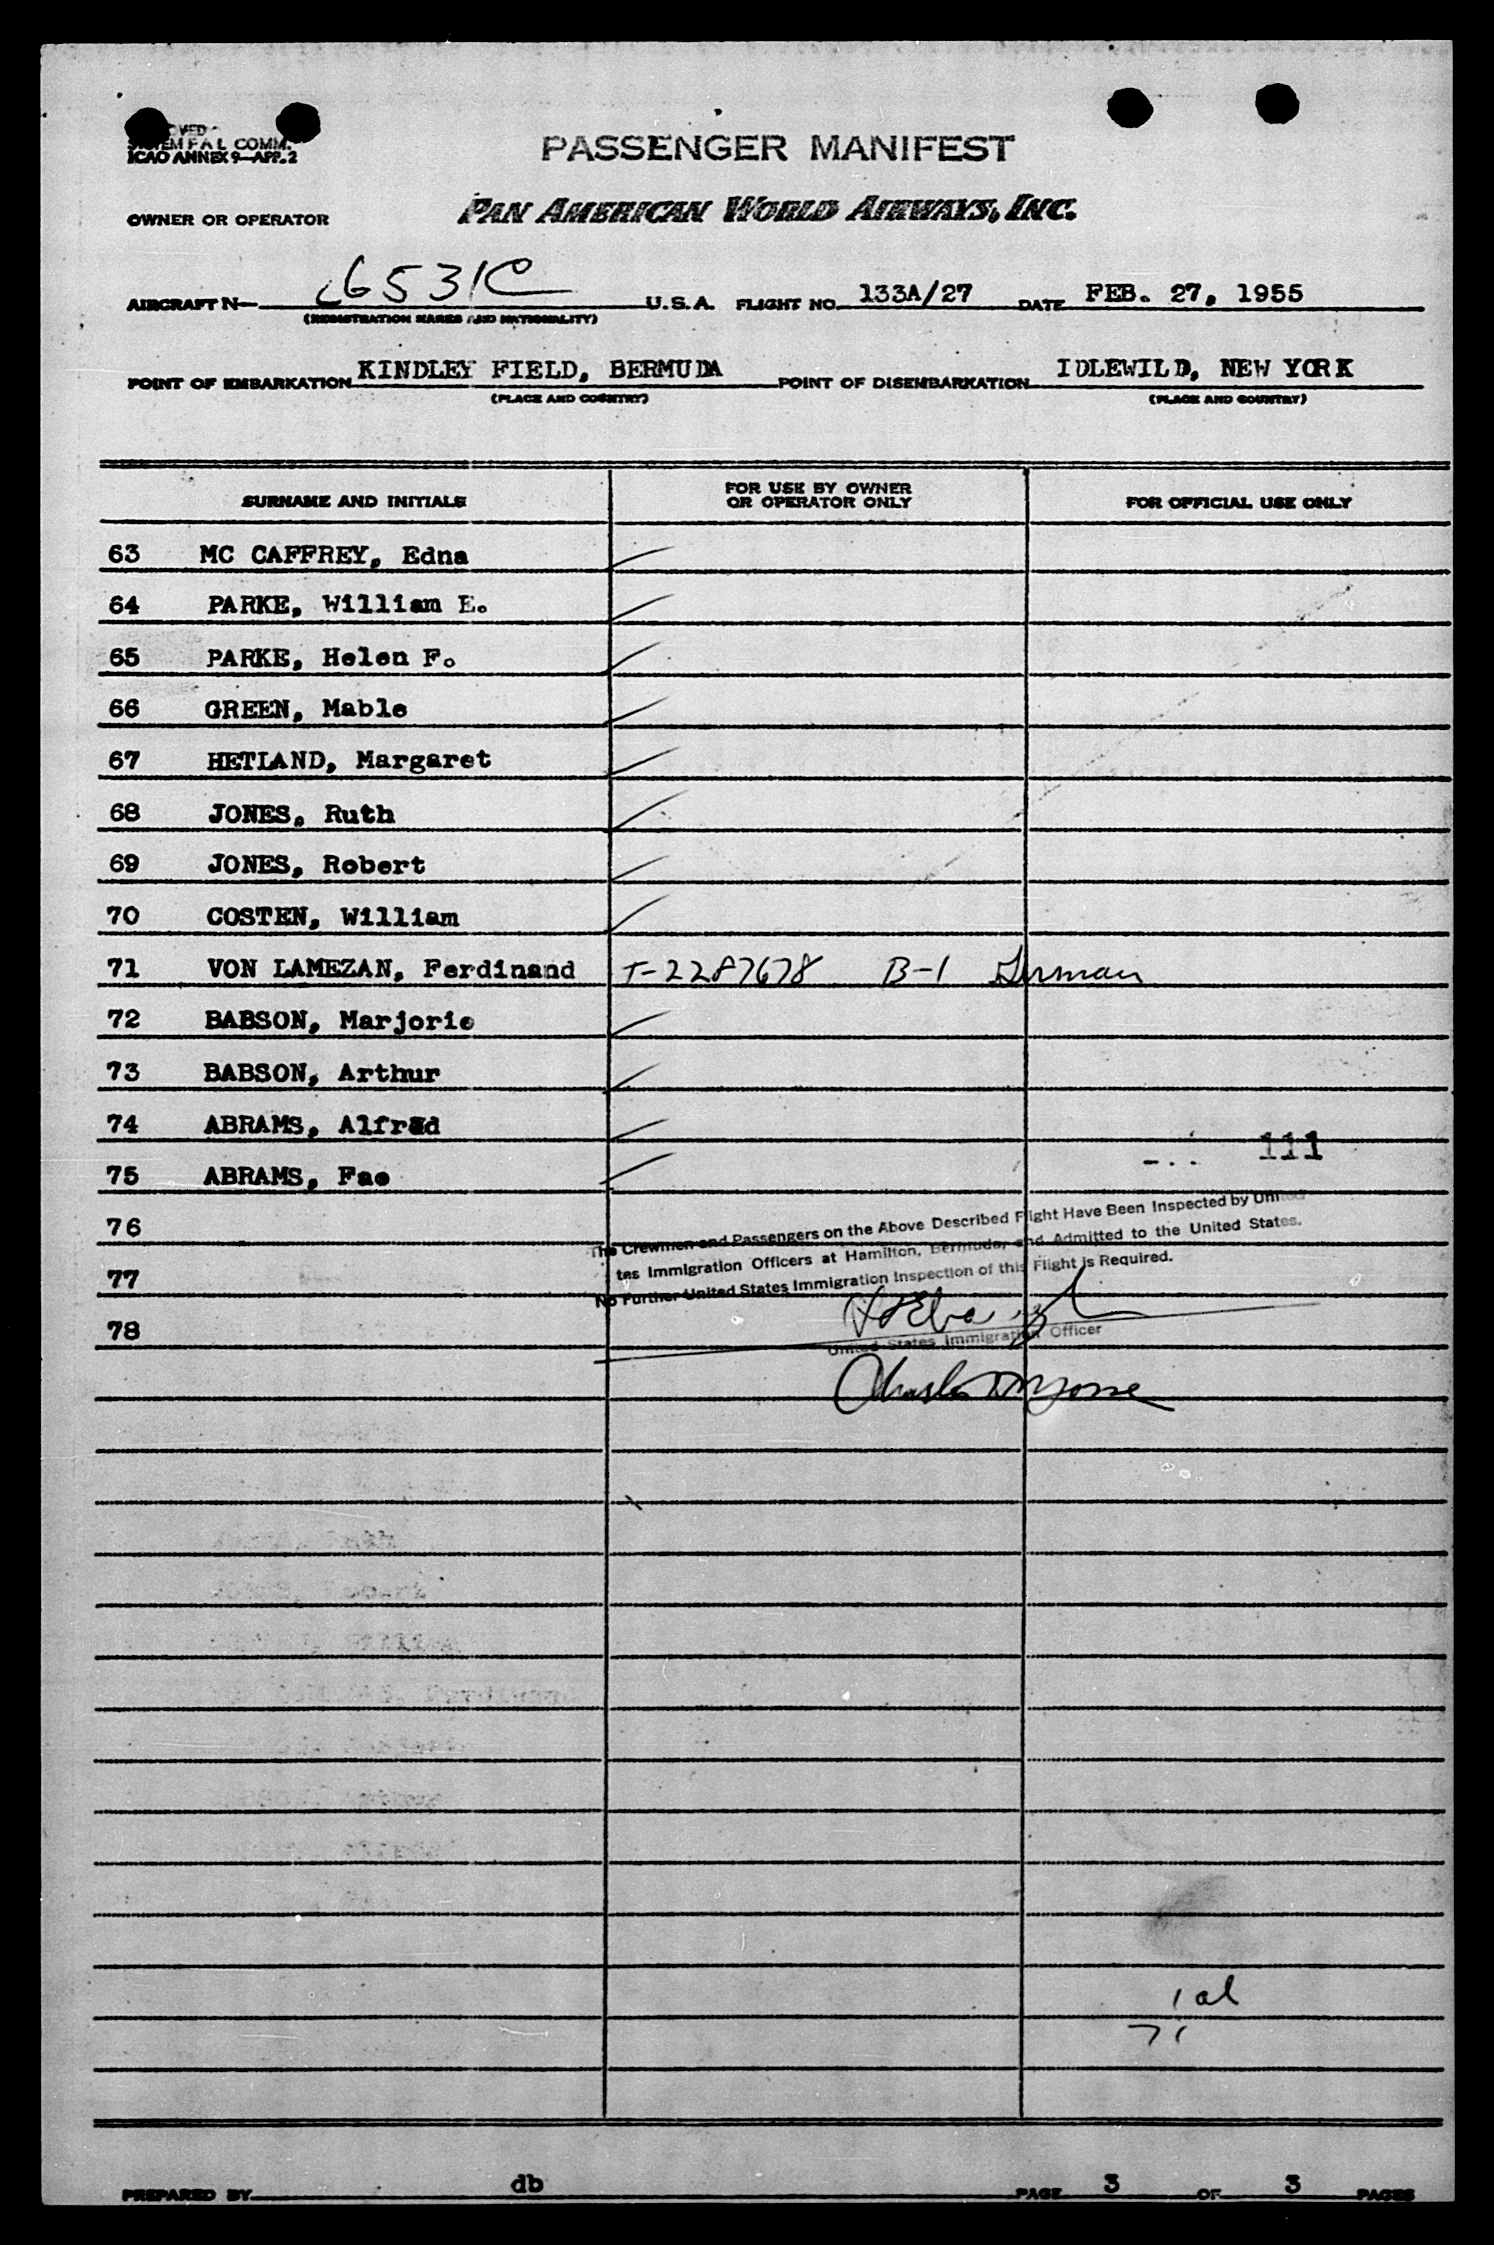 SYSTEM F A L COMM.
ICAO ANNEX 9—APP. 2
PASSENGER MANIFEST
OWNER OR OPERATOR PAN AMERICAN WORLD AIRWAYS, INC.
AIRCRAFT N— 6531C U.S.A. FLIGHT NO. 133A/27 DATE FEB. 27, 1955
(REGISTRATION MARKS AND NATIONALITY)
POINT OF EMBARKATION KINDLEY FIELD, BERMUDA POINT OF DISEMBARKATION IDLEWILD, NEW YORK
(PLACE AND COUNTRY) (PLACE AND COUNTRY)
SURNAME AND INITIALS FOR USE BY OWNER OR OPERATOR ONLY FOR OFFICIAL USE ONLY
63 MC CAFFREY, Edna
64 PARKE, William E.
65 PARKE, Helen F.
66 GREEN, Mable
67 HETLAND, Margaret
68 JONES, Ruth
69 JONES, Robert
70 COSTEN, William
71 VON LAMEZAN, Ferdinand T-2287678 B-1 German
72 BABSON, Marjorie
73 BABSON, Arthur
74 ABRAMS, Alfred
111
75 ABRAMS, Fae
76
The Crewmen and Passengers on the Above Described Flight Have Been Inspected by United
tes Immigration Officers at Hamilton, Bermuda, and Admitted to the United States.
77
No Further United States Immigration Inspection of this Flight is Required.
78
United States Immigration Officer
71
PREPARED BY db PAGE 3 OF 3 PAGES